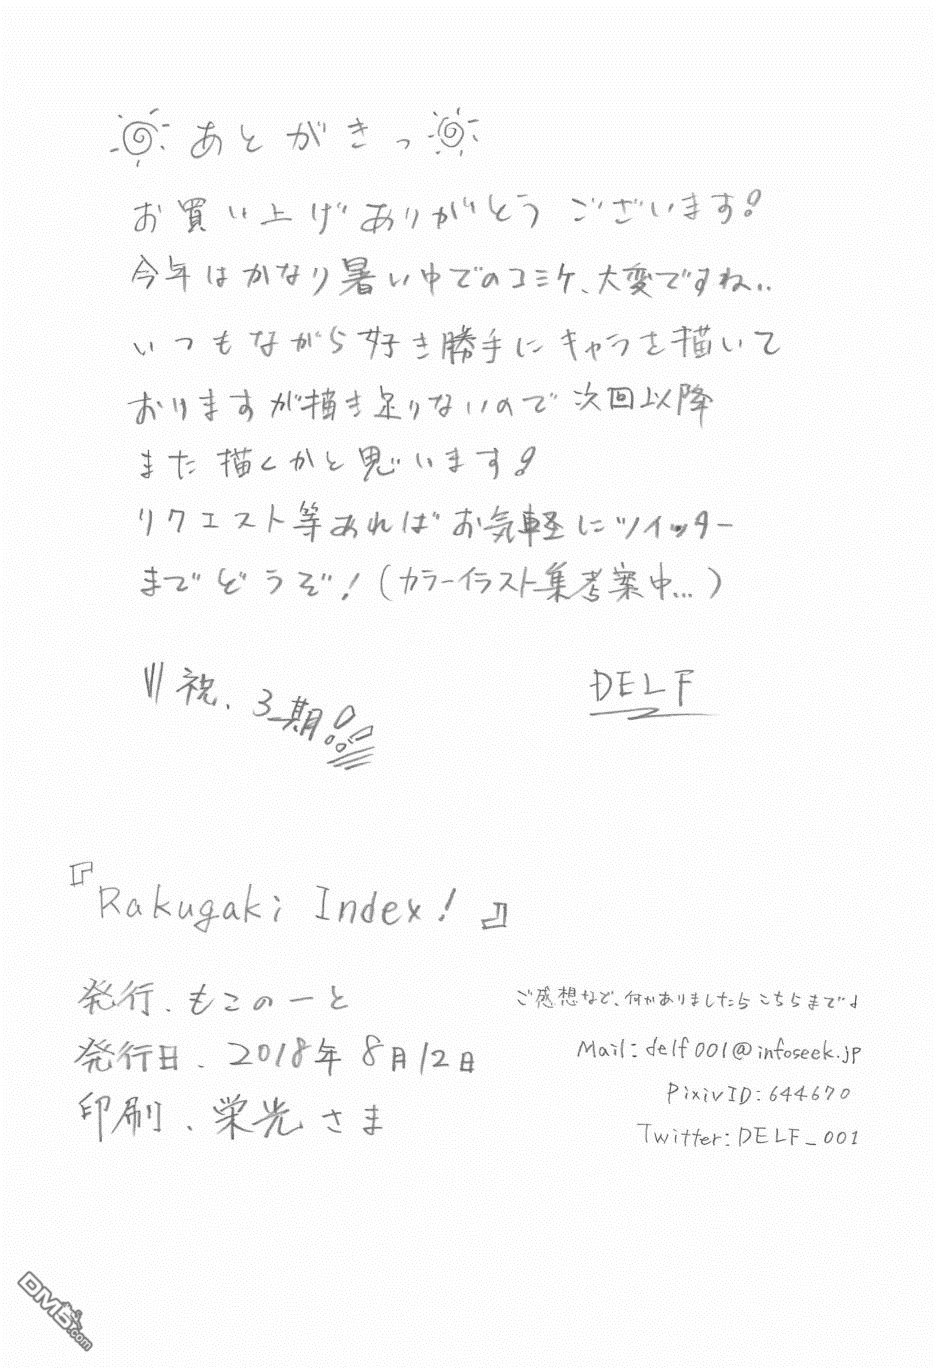 あとがきっ
お買い上げありがとうございます!
今年はかなり暑い中でのコミケ、大変ですね..
いつもながら好き勝手にキャラを描いて
おりますが描き足りないので次回以降
また描くかと思います!
リクエスト等あればお気軽にツイッター
までどうぞ!(カラーイラスト集考案中...)
祝、3期!!
DELF
『Rakugaki Index!』
発行、もこのーと
発行日、2018年8月12日
印刷、栄光さま
ご感想など、何かありましたらこちらまで♩
Mail:delf001@infoseek.jp
PixivID:644670
Twitter:DELF_001
DM5.com